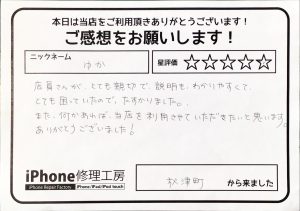 本日は当店をご利用頂きありがとうございます！
ご感想をお願いします！
ニックネーム
ゆか
星評価 ☆☆☆☆☆
店員さんが、とても親切で、説明も、わかりやすくて、
とても困っていたので、たすかりました。
また、何かあれば、当店を利用させていただきたいと思います。
ありがとうございました！
iPhone修理工房
iPhone Repair Factory iPhone/iPad/iPod touch
秋津町 から来ました